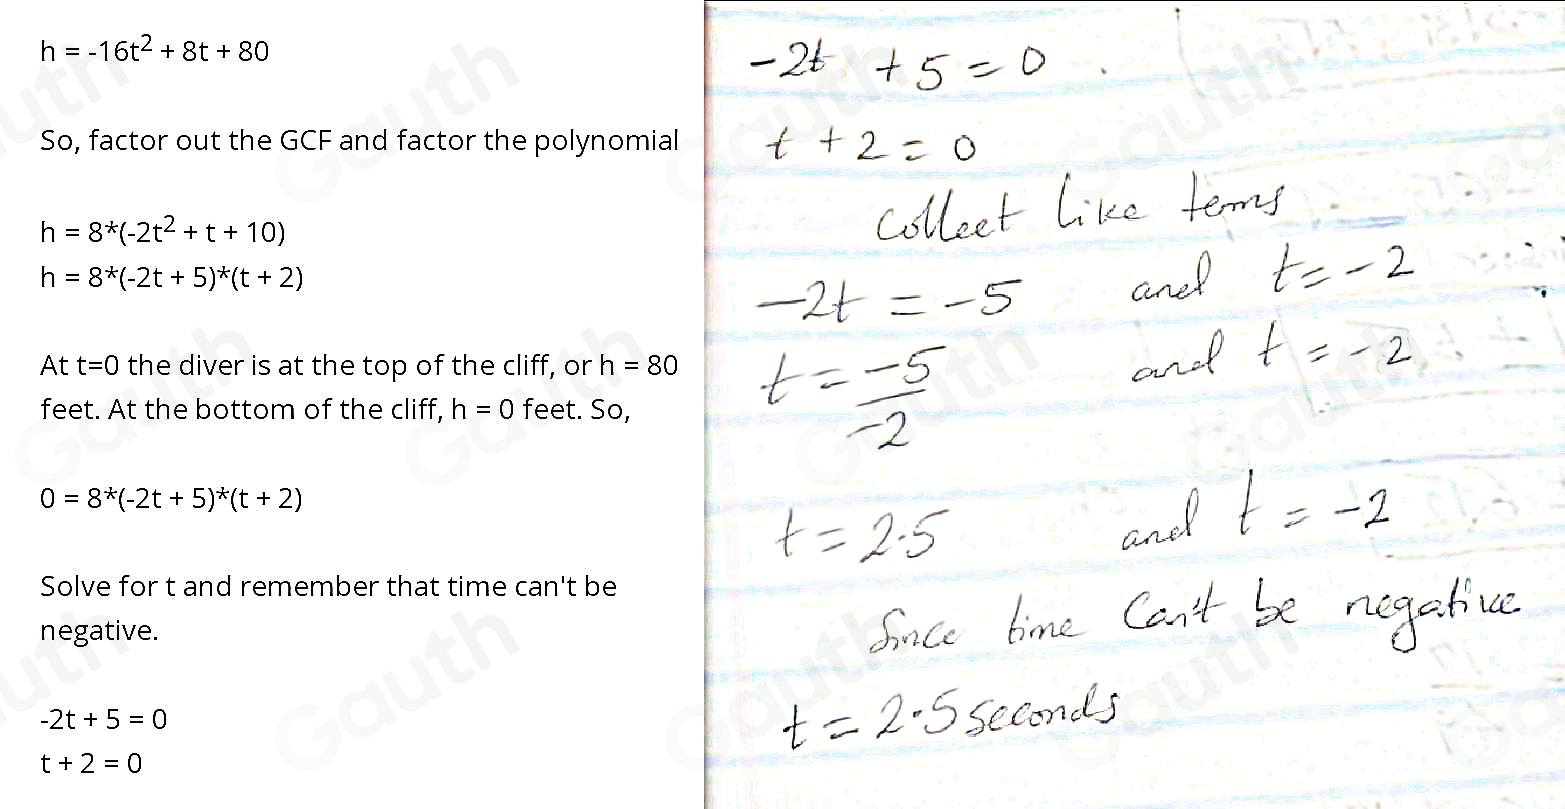 h = -16t² + 8t + 80
So, factor out the GCF and factor the polynomial
h = 8*(-2t² + t + 10)
h = 8*(-2t + 5)*(t + 2)
At t=0 the diver is at the top of the cliff, or h = 80
feet. At the bottom of the cliff, h = 0 feet. So,
0 = 8*(-2t + 5)*(t + 2)
Solve for t and remember that time can't be
negative.
-2t + 5 = 0
t + 2 = 0
-2t + 5 = 0
t + 2 = 0
Collect like terms
-2t = -5 and t = -2
t = -5/-2 and t = -2
t = 2.5 and t = -2
Since time Can't be negative
t = 2.5 seconds
Gauth